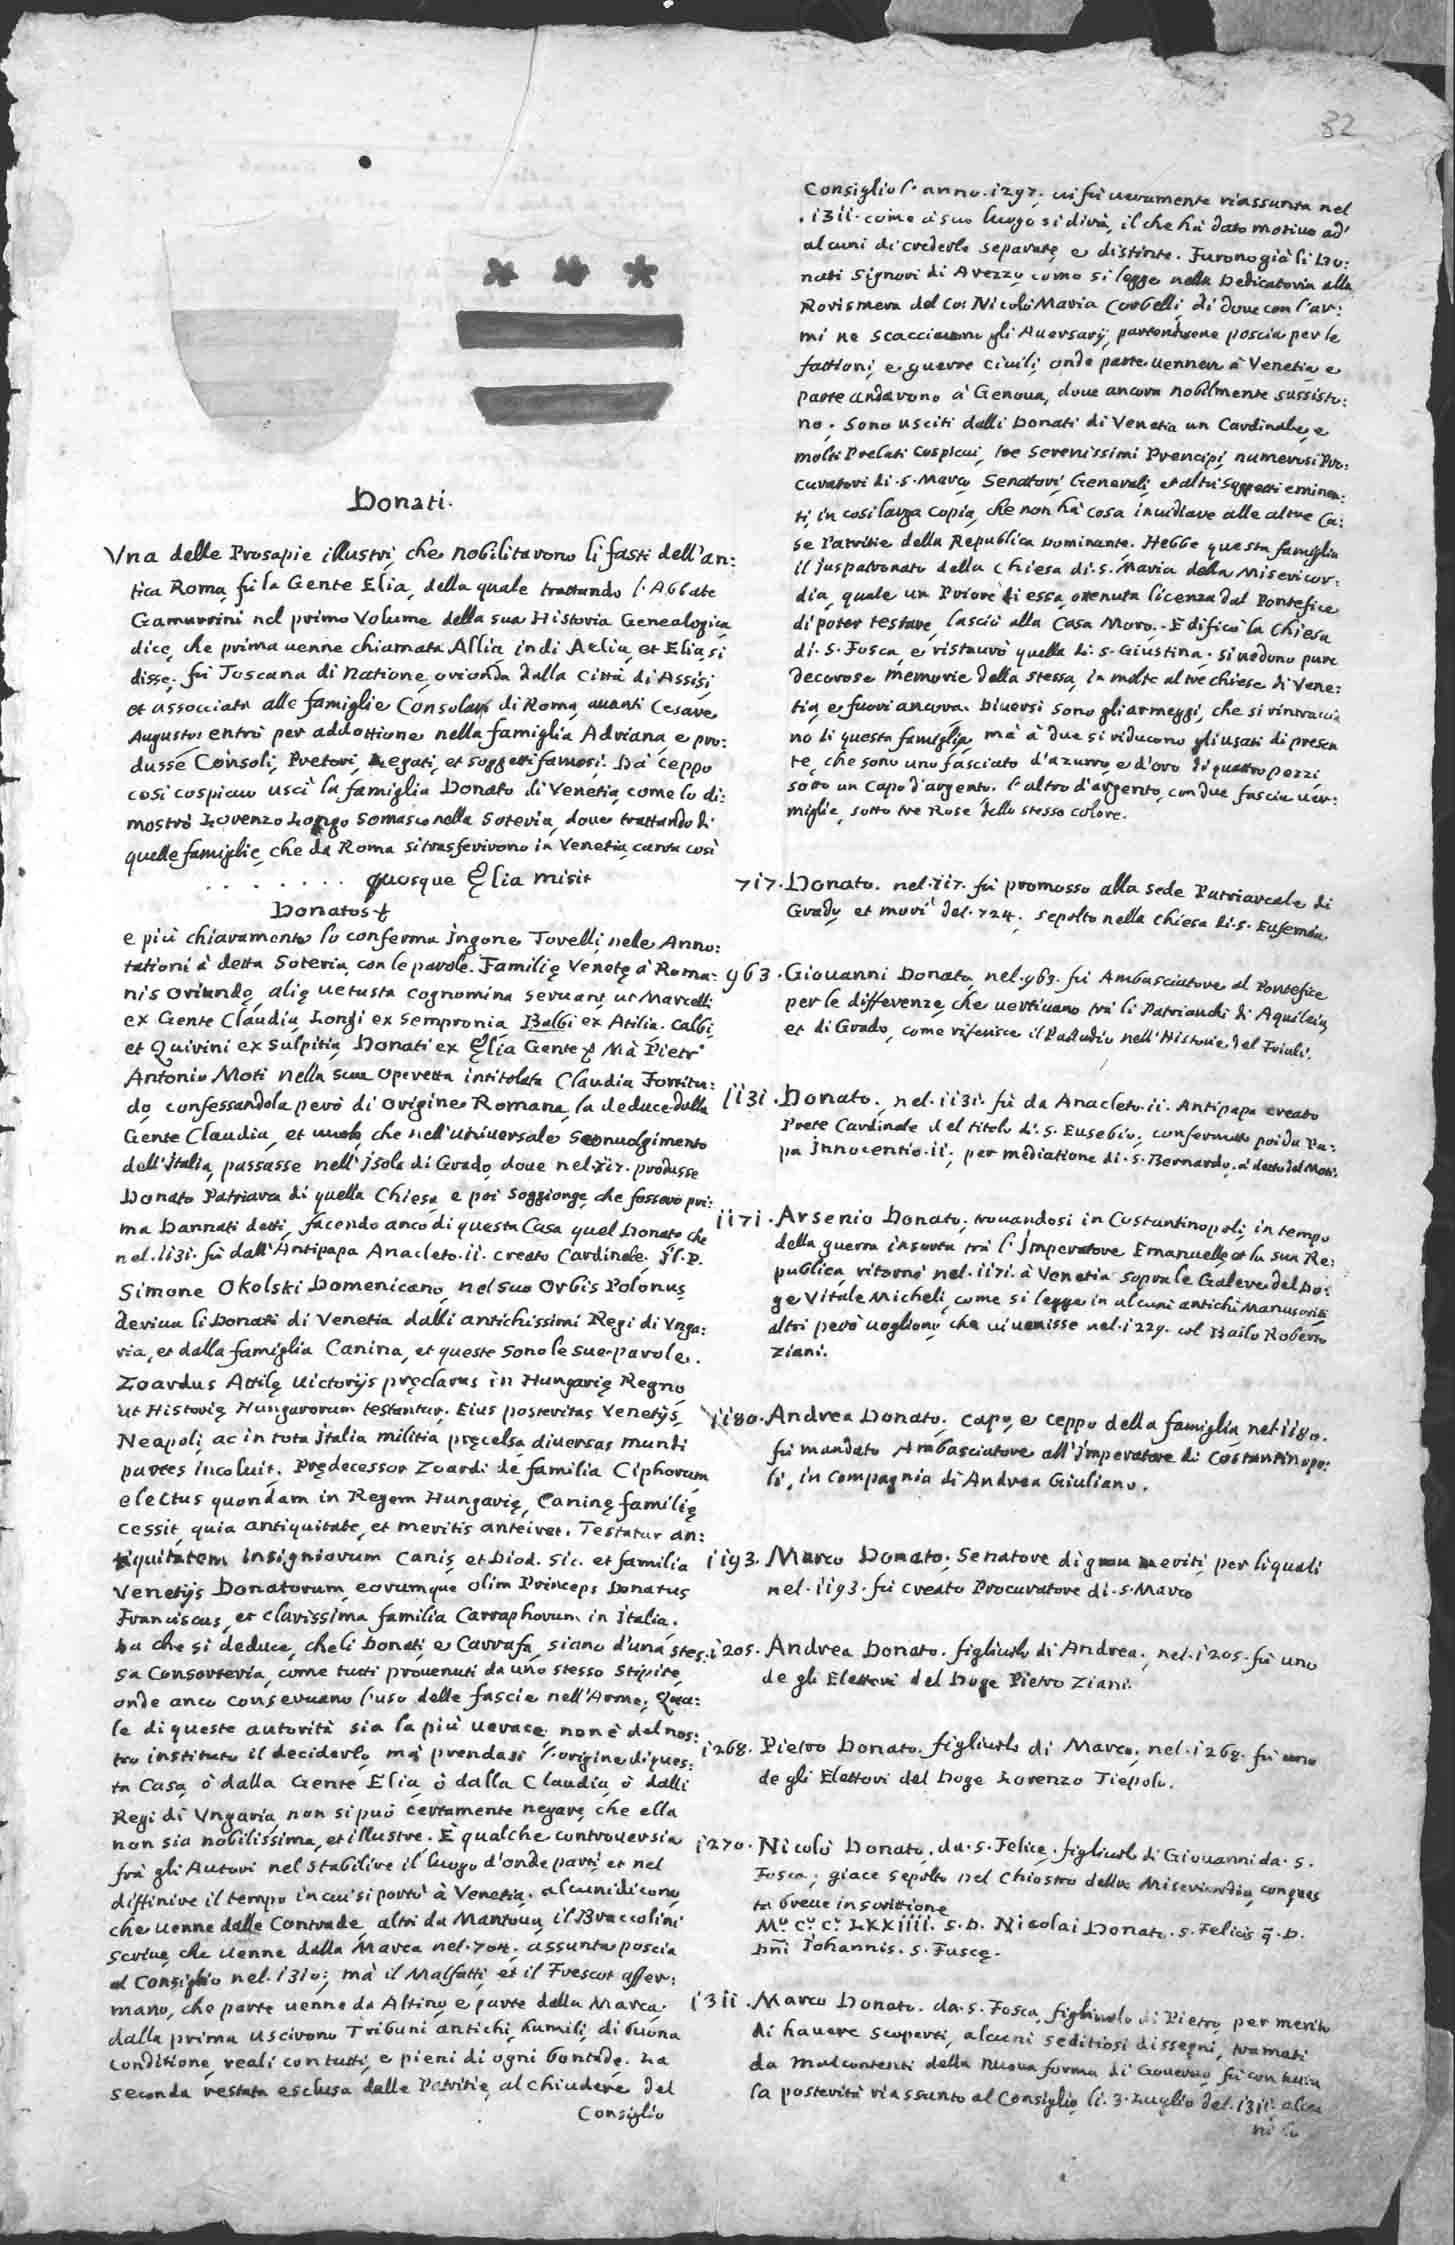 32
Donati.
Vna delle Prosapie illustri, che nobilitarono li fasti dell'an:
tica Roma, fù la Gente Elia, della quale trattando l'Abbate
Gamurrini nel primo Volume della sua Historia Genealogica
dice, che prima uenne chiamata Allia, indi Aelia, et Elia, si
disse. fù Toscana di Natione, orionda dalla Città di Assisi,
et associata alle famiglie Consolari di Roma, auanti Cesare
Augusto: entrò per addottione nella famiglia Adriana, e pro:
dusse Consoli, Pretori, Legati, et soggetti famosi. Da ceppo
così cospicuo uscì la famiglia Donato di Venetia, come lo di:
mostrò Lorenzo Longo Somasco nella Soteria, doue trattando di
quelle famiglie, che da Roma si trasferirono in Venetia, canta così
. . . . . . . quosque Ęlia misit
Donatos
e più chiaramente lo conferma Ingone Tovelli, nele Anno:
tationi à detta Soteria, con le parole. Familię Venetę à Roma:
nis oriundę, alię uetusta cognomina seruant, ut Marcelli
ex Gente Claudia, Longi ex Sempronia Balbi ex Atilia. Calbi,
et Quirini ex Sulpitia, Donati ex Ęlia Gente Mà Pietr°
Antonio Moti nella sua operetta intitolata Claudia Fortitu:
do, confessandola però di origine Romana, la deduce dalla
Gente Claudia, et che nell'uniuersale sconuolgimento
dell'Italia, passasse nell'Isola di Grado, doue nel 717. produsse
Donato Patriarca di quella Chiesa, e poi soggionge, che fossero pri:
ma Dannati detti, facendo anco di questa Casa quel Donato che
nel 1131. fù dall'Antipapa Anacleto. ii. creato Cardinale. Il P.
Simone Okolski Domenicano, nel suo Orbis Polonus,
deriua li Donati di Venetia dalli antichissimi Regi di Vnga:
ria, et dalla famiglia Canina, et queste sono le sue parole.
Zoardus Attilę uictorijs pręclarus in Hungarię Regno,
ut Historię Hungarorum testantur. Eius posteritas Venetijs,
Neapoli, ac in tota Italia militia pręcelsa, diuersas mundi
partes incoluit. Prędecessor Zoardi de familia Ciphorum
electus quondam in Regem Hungarię, Caninę familię
cessit, quia antiquitate, et meritis anteiret. Testatur an:
tiquitatem insigniorum Canis, et Diod. Sic. et familia
Venetijs Donatorum, eorumque olim Princeps Donatus
Franciscus, et clarissima familia Carraphorum in Italia.
Da che si deduce, che li Donati, e Carrafa, siano d'una stes:
sa Consorteria, come tutti prouenuti da uno stesso stipite,
onde anco conseruano l'uso delle fascie nell'Arme. Qua:
le di queste autorità sia la più uerace, non è del nos:
tro instituto il deciderlo, mà prendasi l'origine di ques:
ta Casa, ò dalla Gente Elia, ò dalla Claudia, ò dalli
Regi di Vngaria, non si può certamente negare, che ella
non sia nobilissima, et illustre. È qualche controuersia
frà gli Autori nel stabilire il luogo d'onde partì, et nel
diffinire il tempo in cui si portò à Venetia. alcuni dicono,
che uenne dalle Contrade, altri da Mantoua, il Braccolini
scriue, che uenne dalla Marca nel 704. assunta poscia
al Consiglio nel 1310; mà il Malfatti, et il Frescot affer:
mano, che parte uenne da Altino, e parte dalla Marca.
dalla prima uscirono Tribuni antichi, humili, di buona
conditione, reali con tutti, e pieni di ogni bontade. La
seconda restata esclusa dalle Patritie, al chiudere del
Consiglio
Consiglio l'anno 1297. ui fù ueramente riassunta nel
.1311. come à suo luogo si dirà, il che hà dato motiuo ad'
alcuni di crederle separate, e distinte. Furono già li Do:
nati Signori di Arezzo, come si legge nella Dedicatoria alla
Rorismera del Co: Nicolò Maria Corbelli, di doue con l'ar:
mi ne scacciarono gli Auersarij, partendosene poscia per le
fattioni, e guerre ciuili, onde parte uennero à Venetia, e
parte andarono à Genoua, doue ancora nobilmente sussisto:
no. Sono usciti dalli Donati di Venetia un Cardinale, e
molti Prelati Cospicui, tre Serenissimi Prencipi, numerosi Pro:
curatori di S. Marco, Senatori, Generali, et altri soggetti eminen:
ti, in così larga copia, che non hà cosa inuidiare alle altre Ca:
se Patritie della Republica Dominante. Hebbe questa famiglia
il Juspatronato della Chiesa di S. Maria della Misericor:
dia, quale un Priore di essa, ottenuta licenza dal Pontefice
di poter testare, lasciò alla Casa Moro. Edificò la Chiesa
di S. Fosca, e ristaurò quella di S. Giustina. si uedono pure
decorose memorie della stessa, in molte altre chiese di Vene:
tia, e fuori ancora. Diuersi sono gli armeggi, che si rintraccia
no di questa famiglia, mà à due si riducono gli usati di presen
te, che sono uno fasciato d'azurro, e d'oro di quattro pezzi
sotto un Capo d'argento. l'altro d'argento, con due fascie uer:
miglie, sotto tre Rose dello stesso colore.
717. Donato. nel 717. fù promosso alla sede Patriarcale di
Grado, et morì del 724. sepolto nella chiesa di S. Eufemia
963. Giouanni Donato, nel 963. fù Ambasciatore al Pontefice
per le differenze, che uertiuano trà li Patriarchi di Aquileia,
et di Grado, come riferisce il Palladio nell'Historie del Friuli.
1131. Donato, nel 1131. fù da Anacleto. ii. Antipapa creato
Prete Cardinale del titolo di S. Eusebio, confermato poi da Pa:
pa Innocentio. ii. per mediatione di S. Bernardo, à detto del Moti.
1171. Arsenio Donato, trouandosi in Costantinopoli, in tempo
della guerra insorta trà l'Imperatore Emanuelle, et la sua Re:
publica, ritornò nel 1171. à Venetia sopra le Galere del Do:
ge Vitale Micheli, come si legge in alcuni antichi Manuscritti
altri però uogliono, che ui uenisse nel 1229. col Bailo Roberto
Ziani.
1180. Andrea Donato, capo, e ceppo della famiglia, nel 1180.
fù mandato Ambasciatore all'Imperatore di Costantinopo:
li, in compagnia di Andrea Giuliano.
1193. Marco Donato, Senatore di gran meriti, per li quali
nel 1193. fù creato Procuratore di S. Marco
1205. Andrea Donato, figliuolo di Andrea, nel 1205. fù uno
de gli Elettori del Doge Pietro Ziani.
1268. Pietro Donato, figliuolo di Marco, nel 1268. fù uno
de gli Elettori del Doge Lorenzo Tiepolo.
1270. Nicolò Donato, da S. Felice, figliuolo di Giouanni da S.
Fosca, giace sepolto nel Chiostro della Misericordia, con ques
ta breue inscrittione
M.° C.° C.° LXXIIII. S. D. Nicolai Donato. S. Felicis q̃. D.
Dn̄i Iohannis. S. Fuscę.
1311. Marco Donato, da S. Fosca, figliuolo di Pietro, per merito
di hauere scoperti, alcuni seditiosi dissegni, tramati
da malcontenti della nuoua forma di Gouerno, fù con tutta
la posterità riassunto al Consiglio, li 3. Luglio del 1311. alcu
ni lo